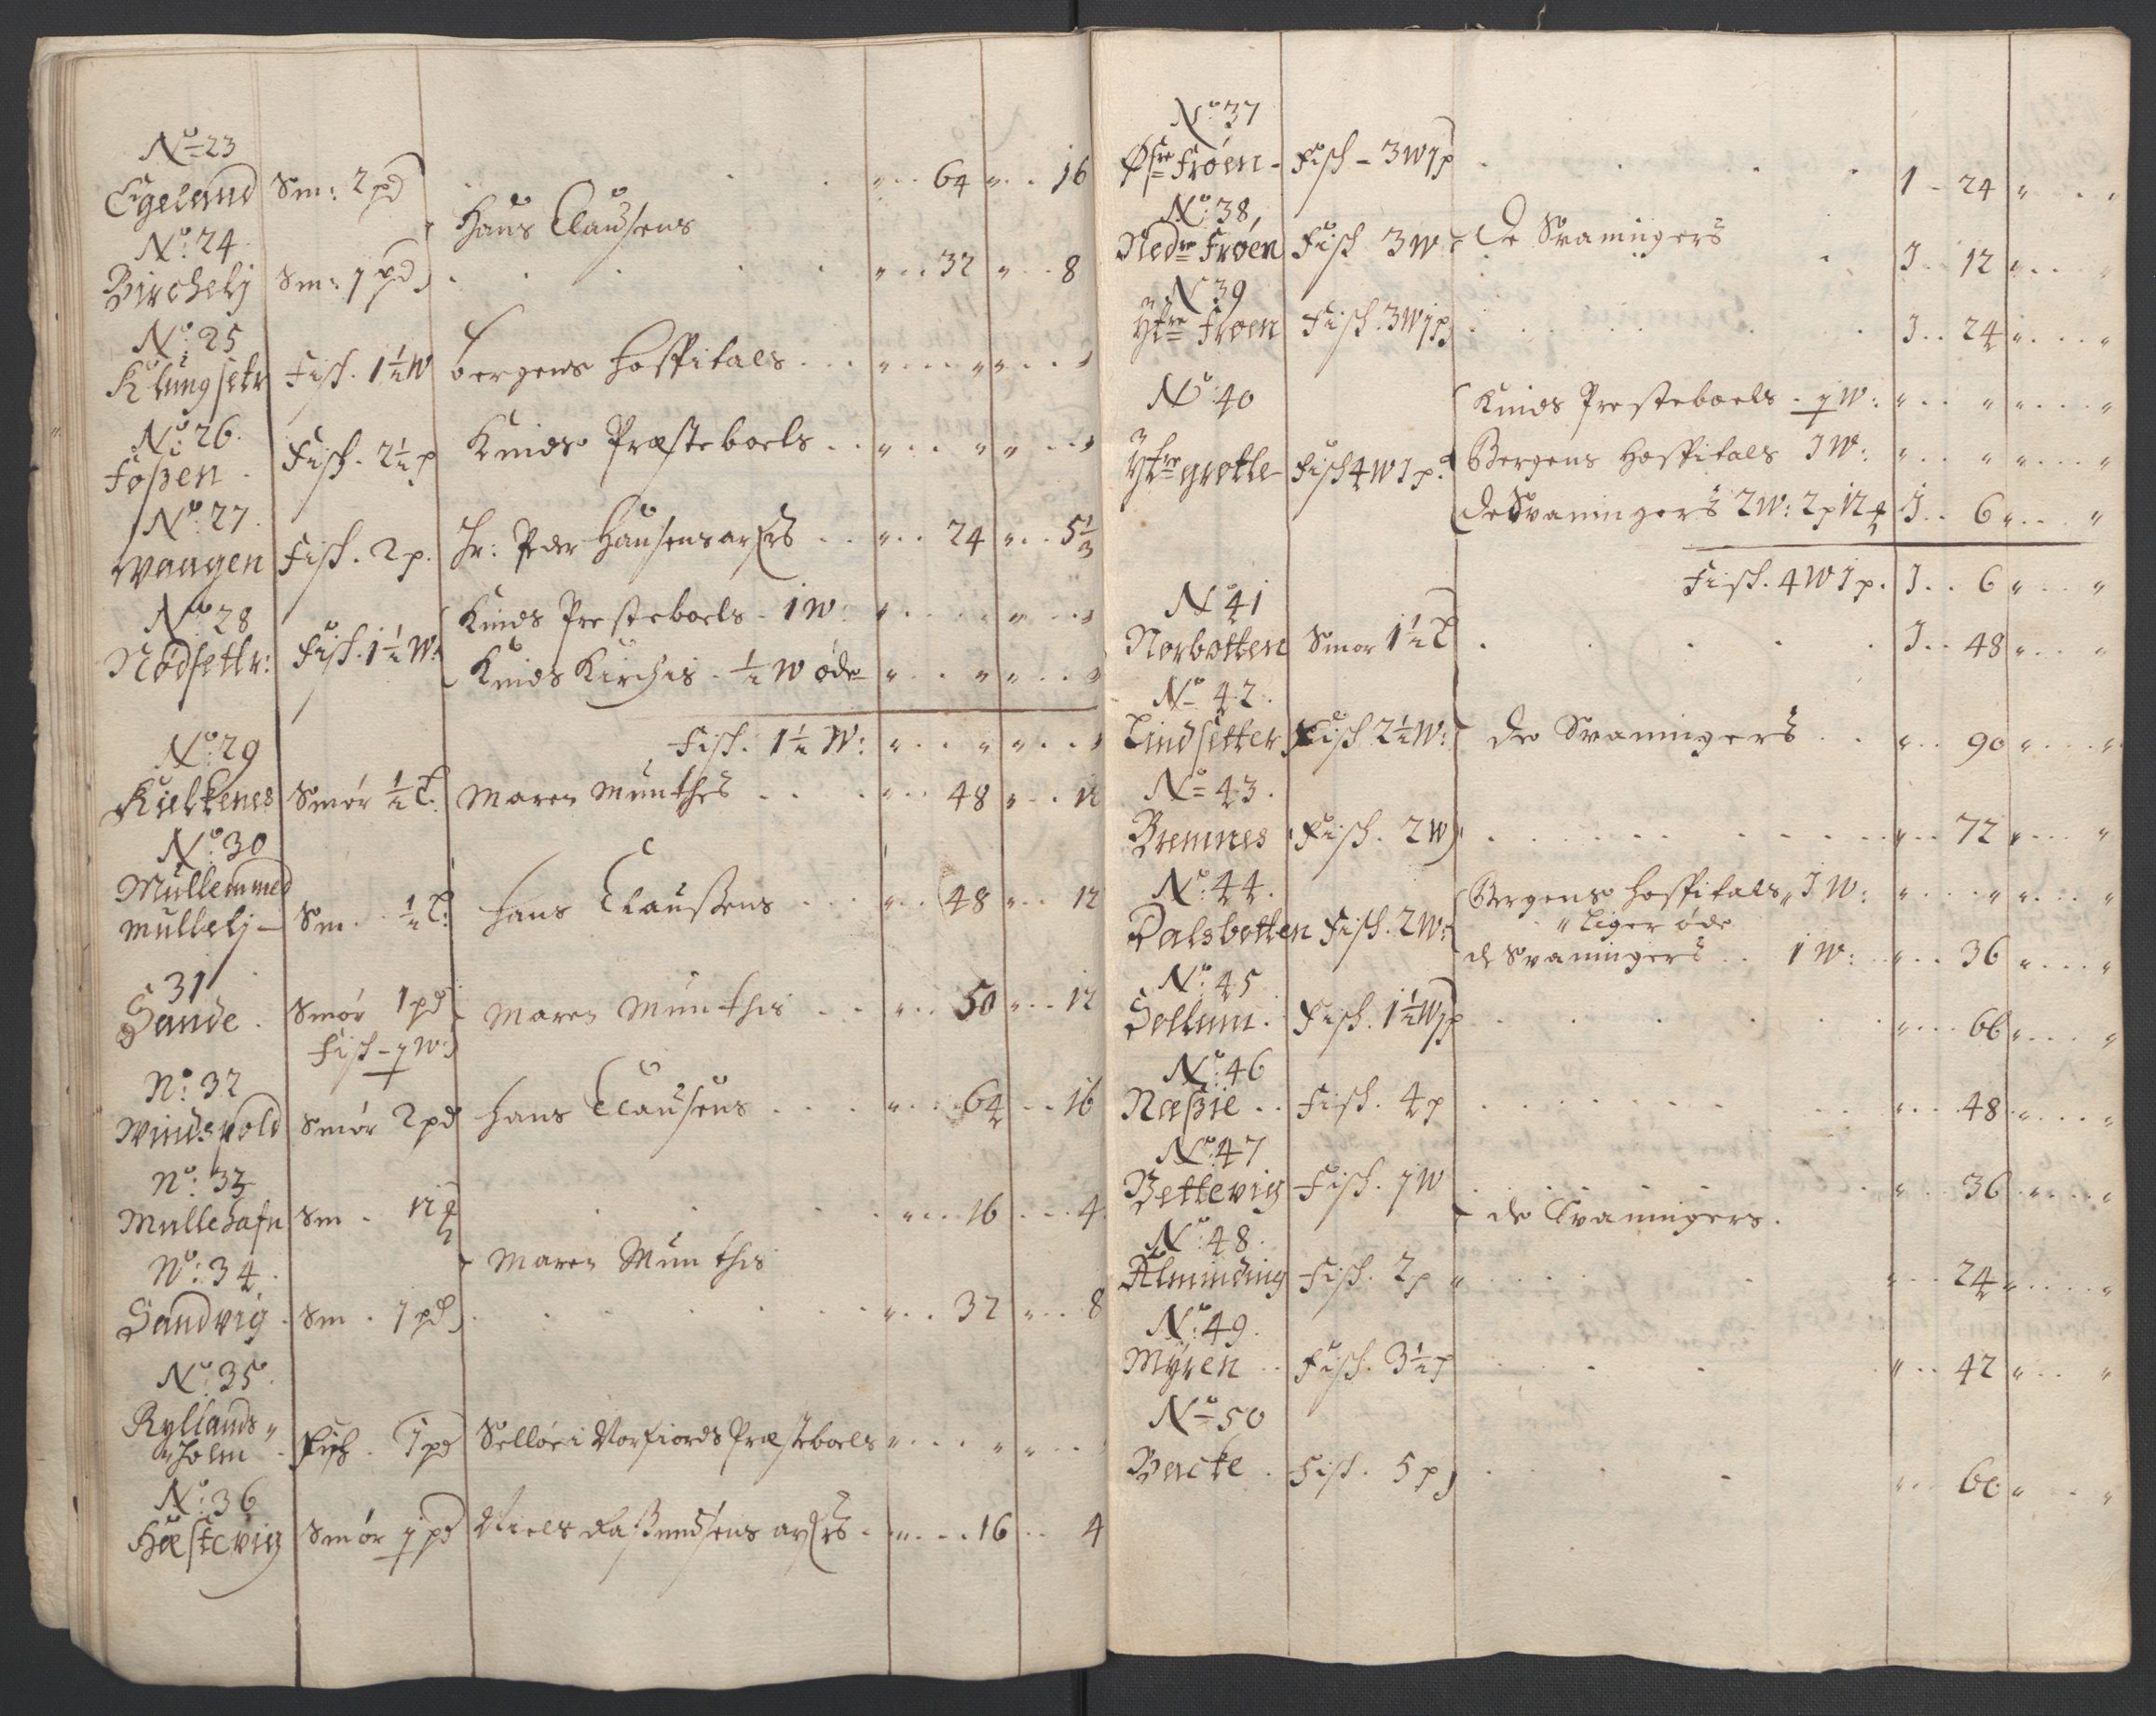 No 23
Egeland Sm: 2 pd „ .. 64 „ .. 16
Hans Clausens
No: 24
Birchelj Sm: 1 pd „ .. 32 „ .. 8
No: 25
Klungsetr Fisk. 1½ W Bergens Hospitals . . „ . . . „ „ . . „
No: 26.
Foßen . Fisk. 2½ p Kinds Præsteboels . . „ . . . „ „ . . „
No: 27.
Waagen Fisk. 2 p. Hr: Peder Hansens arfrs . . „ . . 24 „ . . 5⅓
No 28
Nødsettr: Fisk. 1½ W: Kinds Presteboels - 1 W: „ . . . „ . . „
Kinds Kirches . ½ W øde „ . . „ „ . . „
Fisk. 1½ W: „ . . „ „ . . „
No: 29
Kielkenes Smør ½ L. Maren Munthes . . . „ . . 48 „ . . 12
No: 30
Mullem med
mullelj - Sm . ½ L: Hans Claußens . . . „ . . 48 „ . . 12
31
Sande . Smør 1 pd Maren Munthis . . „ . . 50 „ . . 12
Fisk - 1 W:
No: 32
Windspold Smør 2 pd Hans Clausens . . . „ . . 64 . . 16
No: 33
Mullehafn Sm . 12 „ . . 16 . . . 4
Maren Munthis
No: 34.
Sandvig . Sm . 1 pd „ . . 32 „ . . 8
No: 35.
Ryllands „
„ holm . Fisk . 1 pd Selløe i Norfiords Præsteboels „ . . . „ „ . .
No: 36
Hæstevig Smør 1 pd Niels Raßmudsens arfrs . „ . . . 16 . . 4
No: 37
Øfre Frøen - Fisk - 3 W 1 p 1 - 24 „ . . „
No: 38,
Nedre Frøen Fisk 3 W De Svaningers 1 . . 12 „ . . „
No 39
Ytre Frøen Fisk. 3 W 1 p 1 . . 24 „ . . . „
No 40
Kinds Presteboels - 1 W: „ . . „ „ . . . „
Ytre grotle Fisk 4 W 1 p. Bergens Hospitals 1 W: „ . . „ „ . . . „
De Svaningers 2 W: 2 p 12 1 . . 6 „ . . . „
Fisk. 4 W 1 p. 1 . . 6 „ . . „
No 41
Norbotten Smør 1½ L 1 . . 48 „ . . „
No 42.
Lindsetter Fisk 2½ W: De Svaningers . . „ . . 90 „ . . . „
No 43.
Bremnes Fisk . 2 W „ . . 72 „ . . . „
No: 44.
Dalsbotten Fisk. 2 W: Bergens Hospitals „ 1 W: „ . . . „ „ . . . „
„ Liger øde
de Svaningers . . 1 W: „ . . 36 „ . . . „
No: 45
Sollum . Fisk. 1½ W 1 p „ . . . 66 „ . . . „
No: 46
Næßie . . Fisk. 4 p „ . . . 48 „ . . . „
No: 47
Bettevig Fisk. 1 W „ . . 36 . „ . . . „
de Svaningers .
No: 48.
Alminding Fisk. 2 p „ „ . . . 24 „ . . . „
No: 49.
Myren . . Fisk. 3½ p „ . . 42 „ . . . „
No 50
Backe . Fisk. 5 p „ . . 60 „ . . „